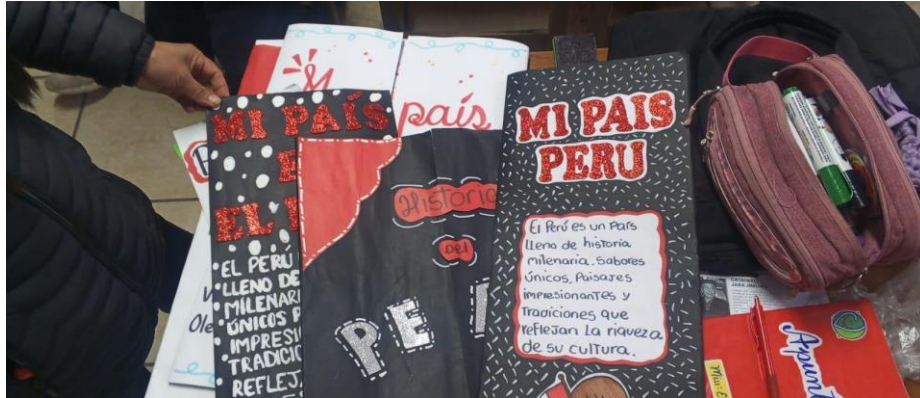 país
MI PAÍS
E
EL
EL PERÚ
LLENO DE
MILENARI
ÚNICOS P
IMPRESI
TRADICIO
REFLEJ
Historia
DEL
PE
MI PAIS
PERU
El Perú es un País
lleno de historia
milenaria, Sabores
únicos, Paisajes
impresionantes y
Tradiciones que
reflejan La riqueza
de su cultura.
Apunt